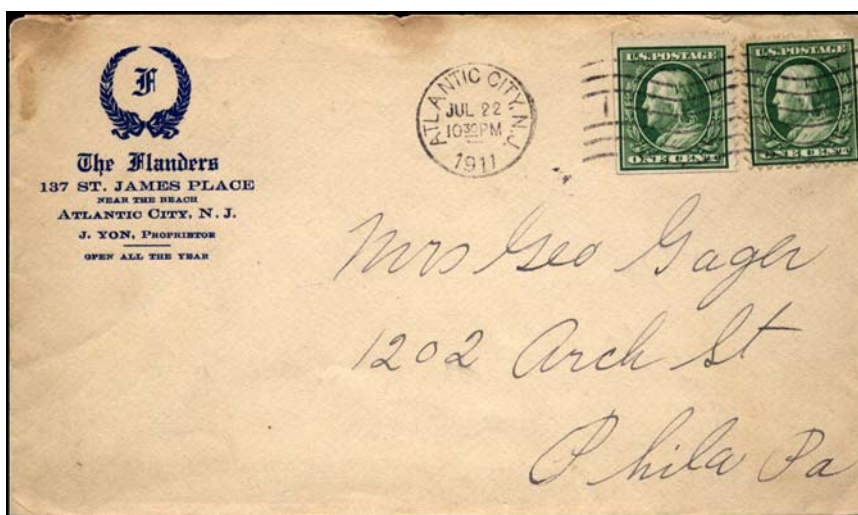 F
The Flanders
137 ST. JAMES PLACE
NEAR THE BEACH
ATLANTIC CITY, N. J.
J. YON, PROPRIETOR
OPEN ALL THE YEAR
ATLANTIC CITY, N.J.
JUL 22
10 30 PM
1911
U.S. POSTAGE
ONE CENT
U.S. POSTAGE
ONE CENT
Mrs Geo Gager
1202 Arch St
Phila Pa